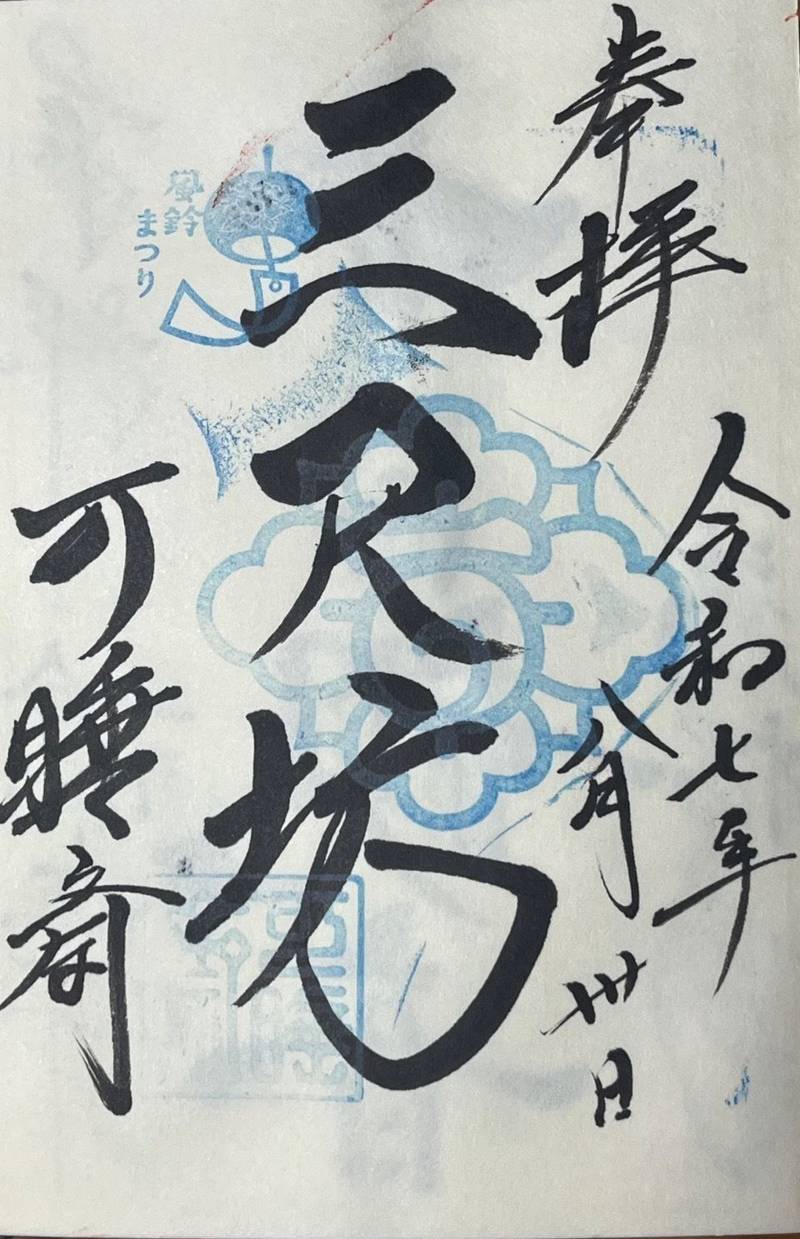 奉拝
令和七年
八月卅日
三尺坊
可睡斎
風鈴
まつり